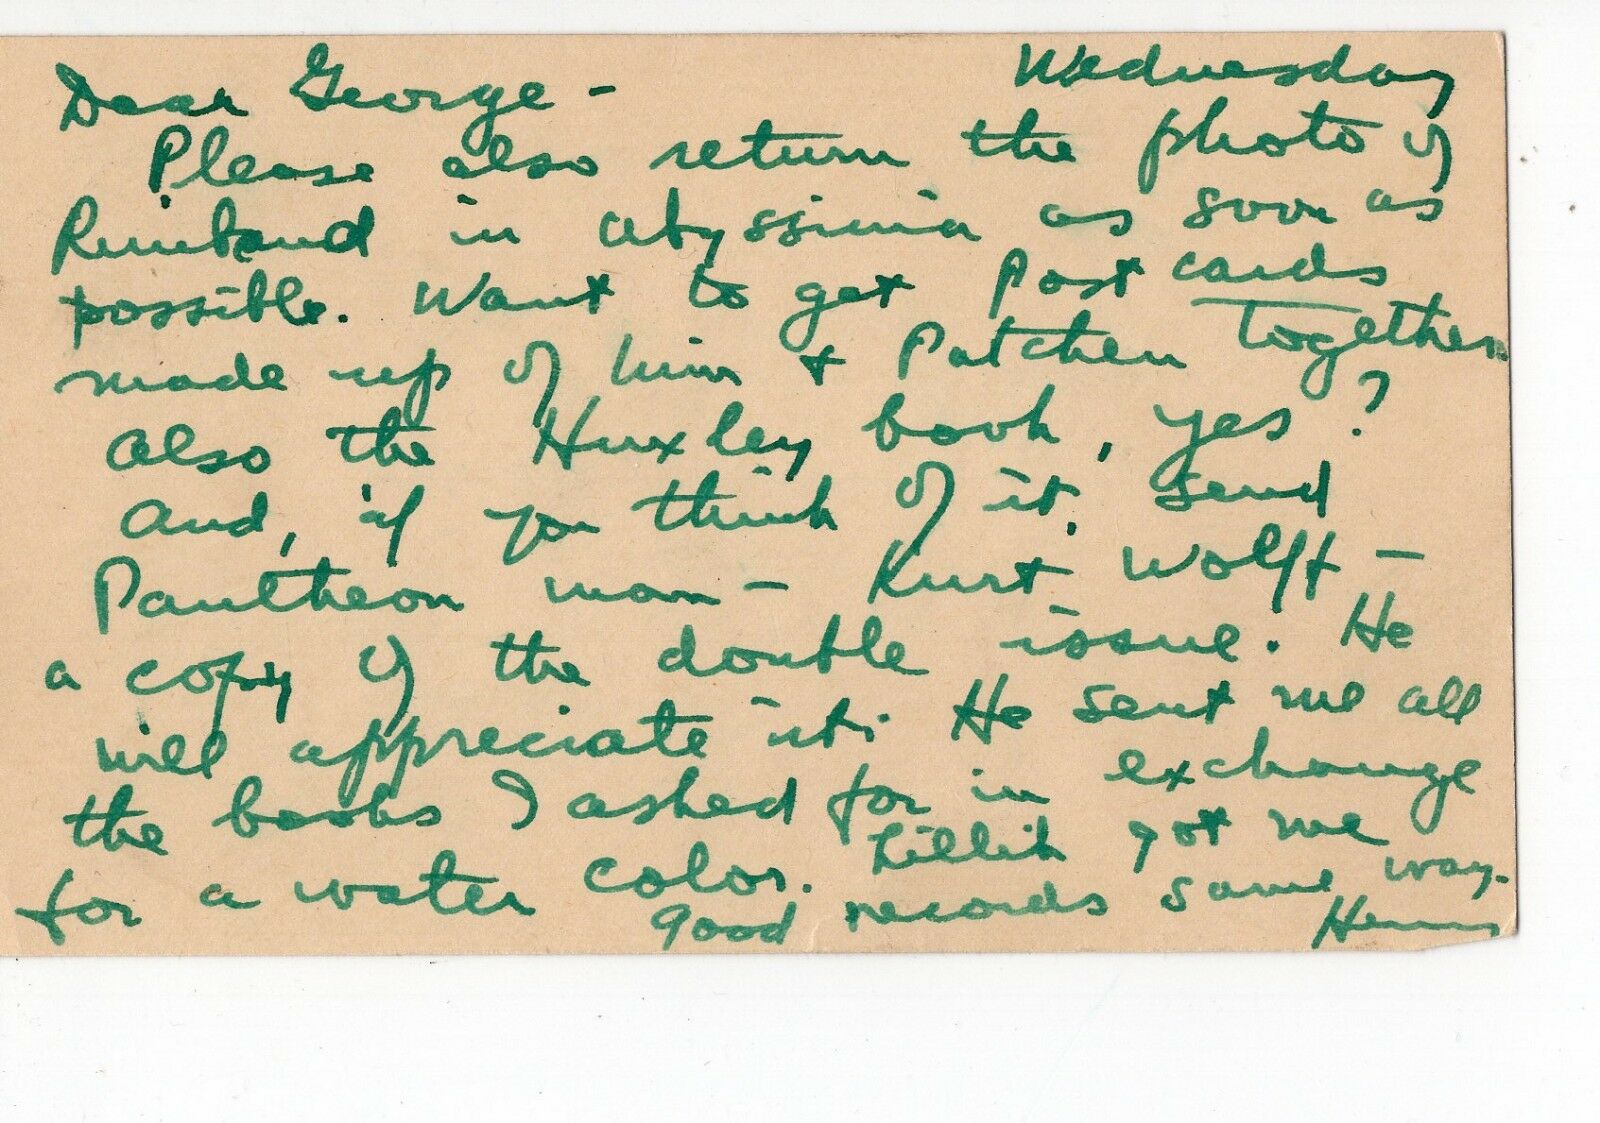 Wednesday
Dear George -
Please also return the photo of
Rimbaud in Abyssinia as soon as
possible. Want to get post cards
made up of him + Patchen together.
Also the Huxley book, yes?
And, if you think of it, send
Pantheon man - Kurt Wolff -
a copy of the double issue. He
will appreciate it. He sent me all
the books I asked for in exchange
for a water color. Lillik got me
good records same way.
Henry